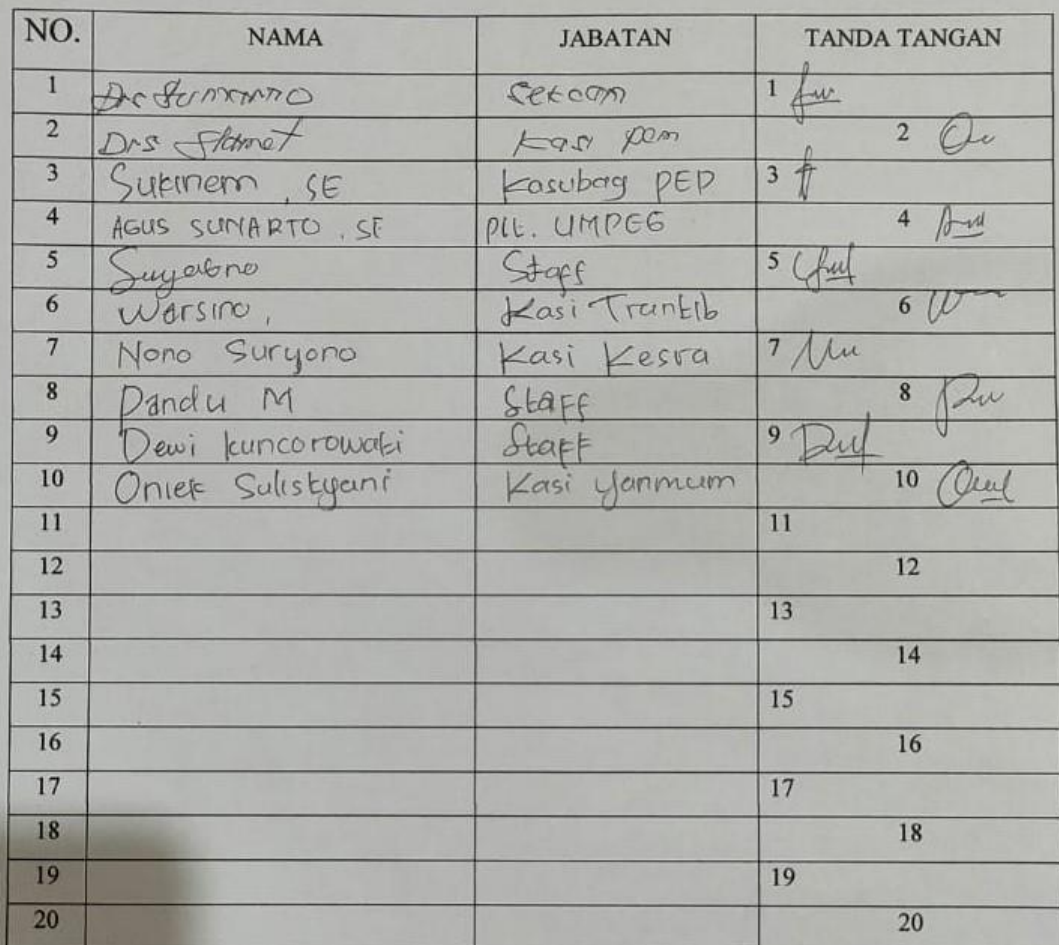 NO. NAMA JABATAN TANDA TANGAN
1 Drs Sumarno Sekcam 1
2 Drs Slamet Kasi pem 2
3 Sukinem, SE Kasubag PEP 3
4 AGUS SUNARTO. SE Plt. UMPEG 4
5 Suyatno Staff 5
6 Warsino, Kasi Trantib 6
7 Nono Suryono Kasi Kesra 7
8 Pandu M Staff 8
9 Dewi kuncorowati Staff 9
10 Oniek Sulistyani Kasi Yanmum 10
11 11
12 12
13 13
14 14
15 15
16 16
17 17
18 18
19 19
20 20